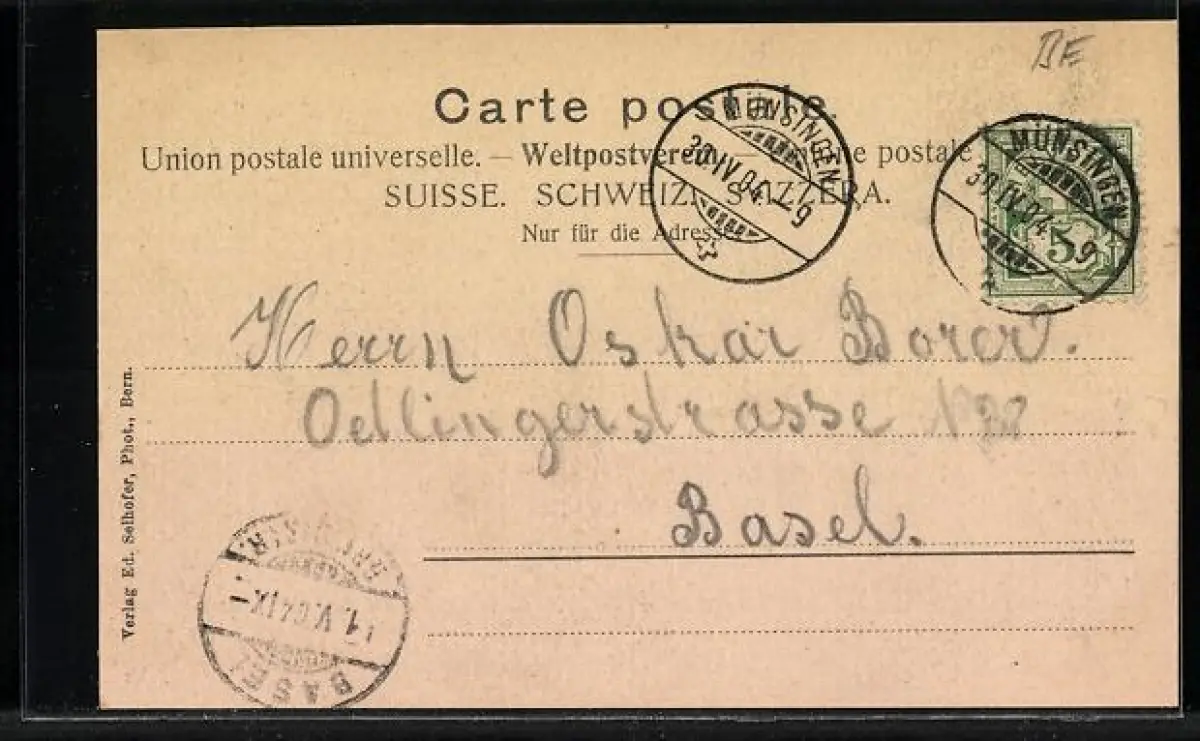 BE
Carte postale.
Union postale universelle. — Weltpostverein. — postale
SUISSE. SCHWEIZ. SVIZZERA.
Nur für die Adresse
MÜNSINGEN
30.IV.04.–9
MÜNSINGEN
30.IV.04.–9
5
Herrn Oskar Borer.
Oetlingerstrasse
Basel.
Verlag Ed. Selhofer, Phot., Bern.
1.V.04.IX–
BASEL